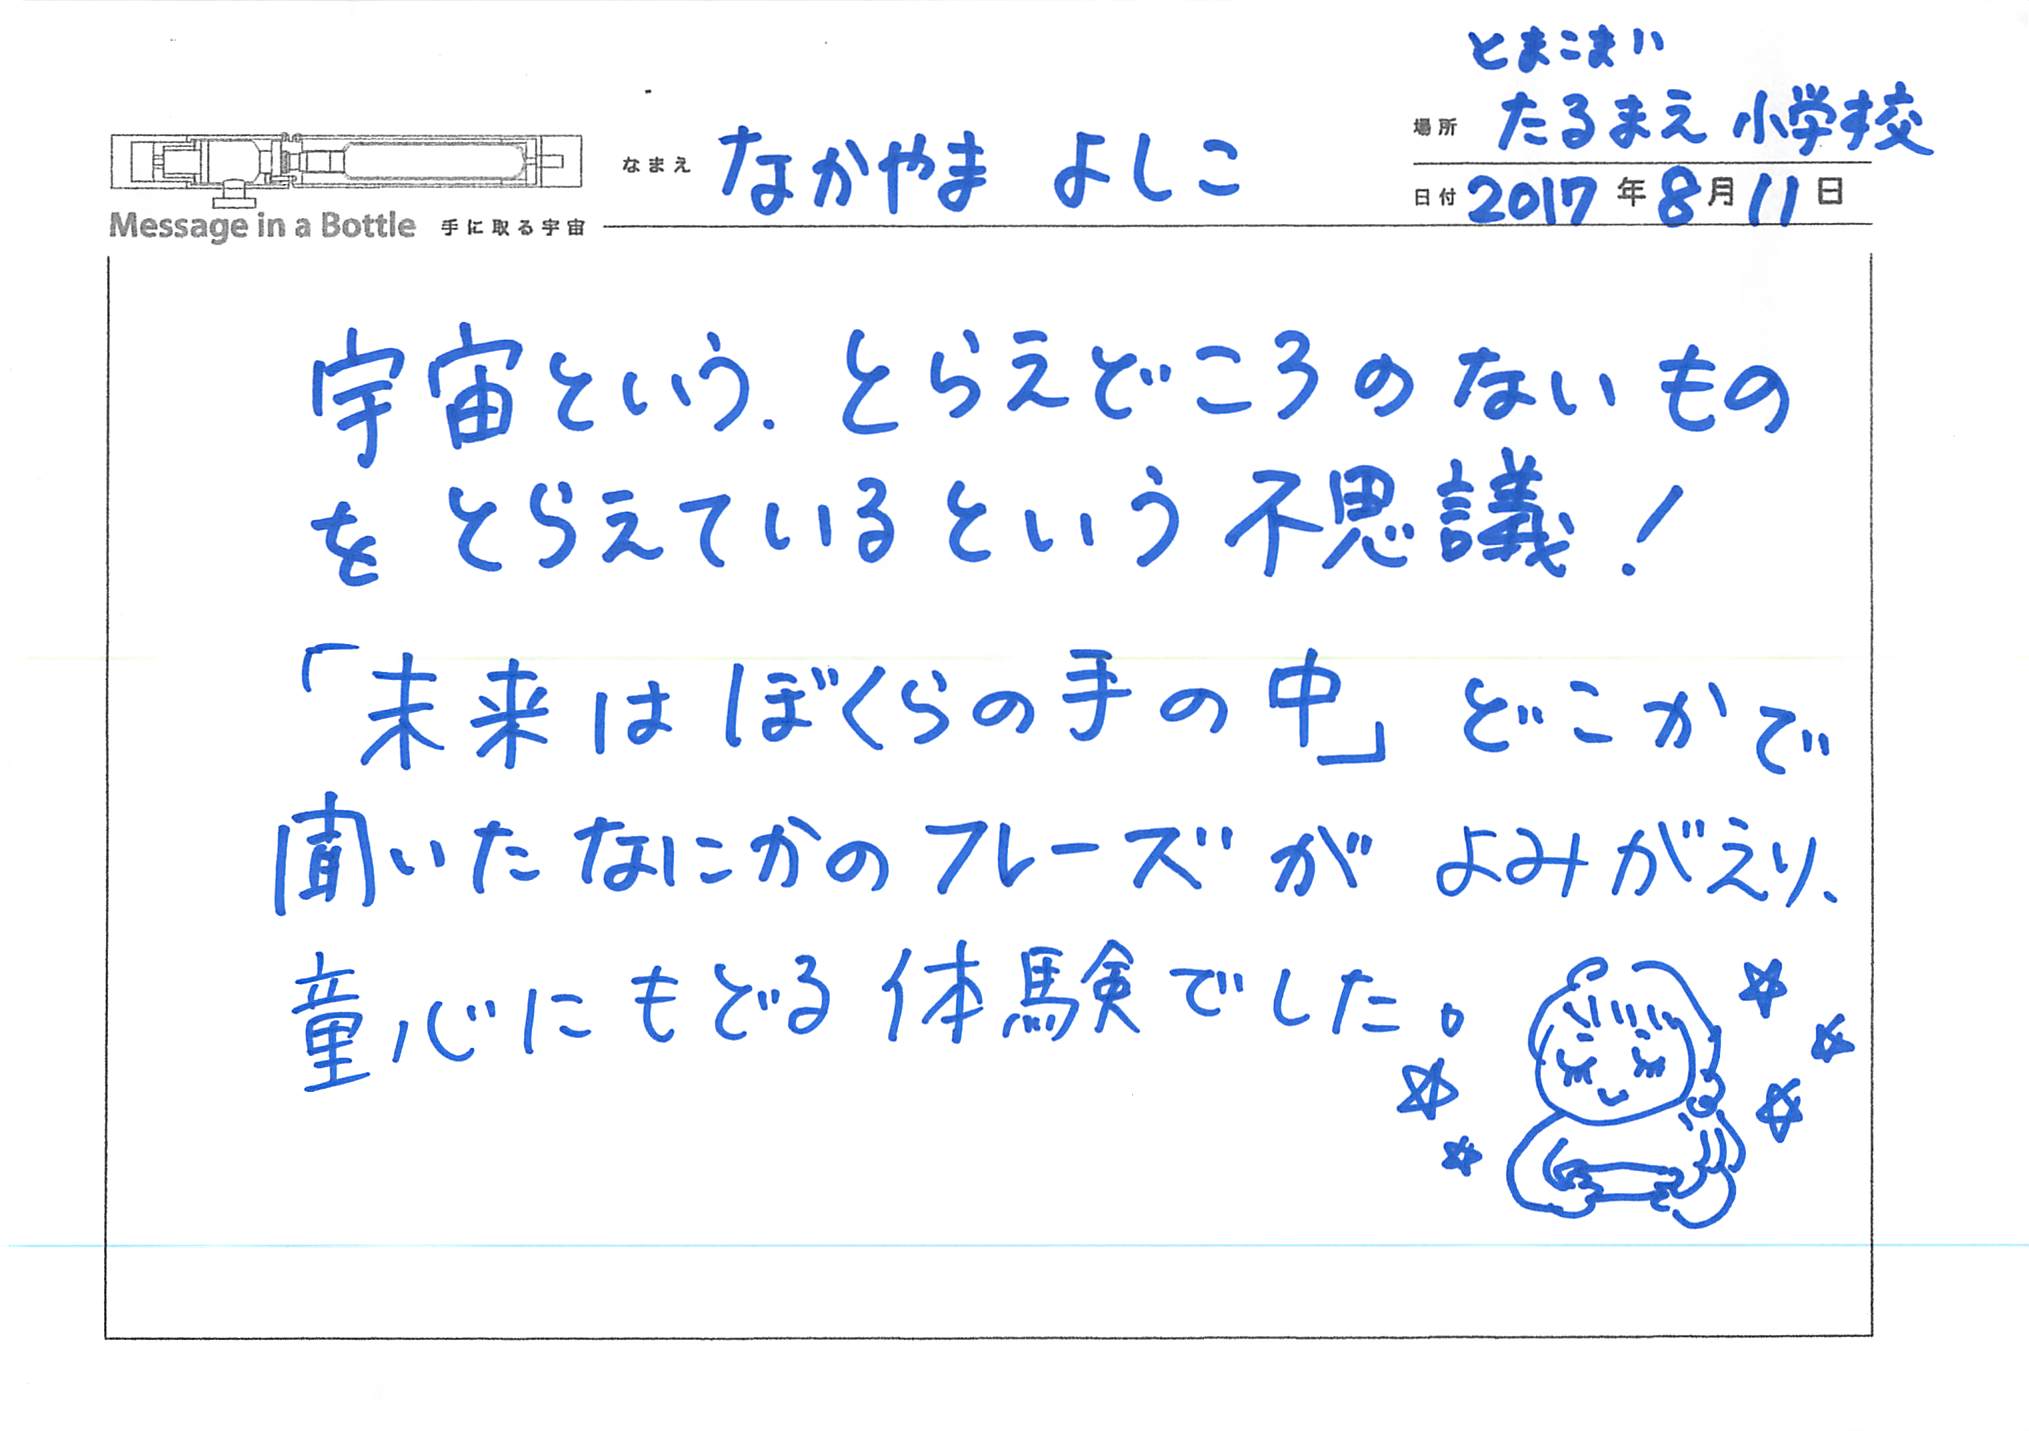 とまこまい
場所 たるまえ 小学校
なまえ なかやま よしこ
日付 2017年8月11日
Message in a Bottle 手に取る宇宙
宇宙という、とらえどころのないもの
をとらえているという不思議!
「未来はぼくらの手の中」どこかで
聞いたなにかのフレーズがよみがえり、
童心にもどる体験でした。